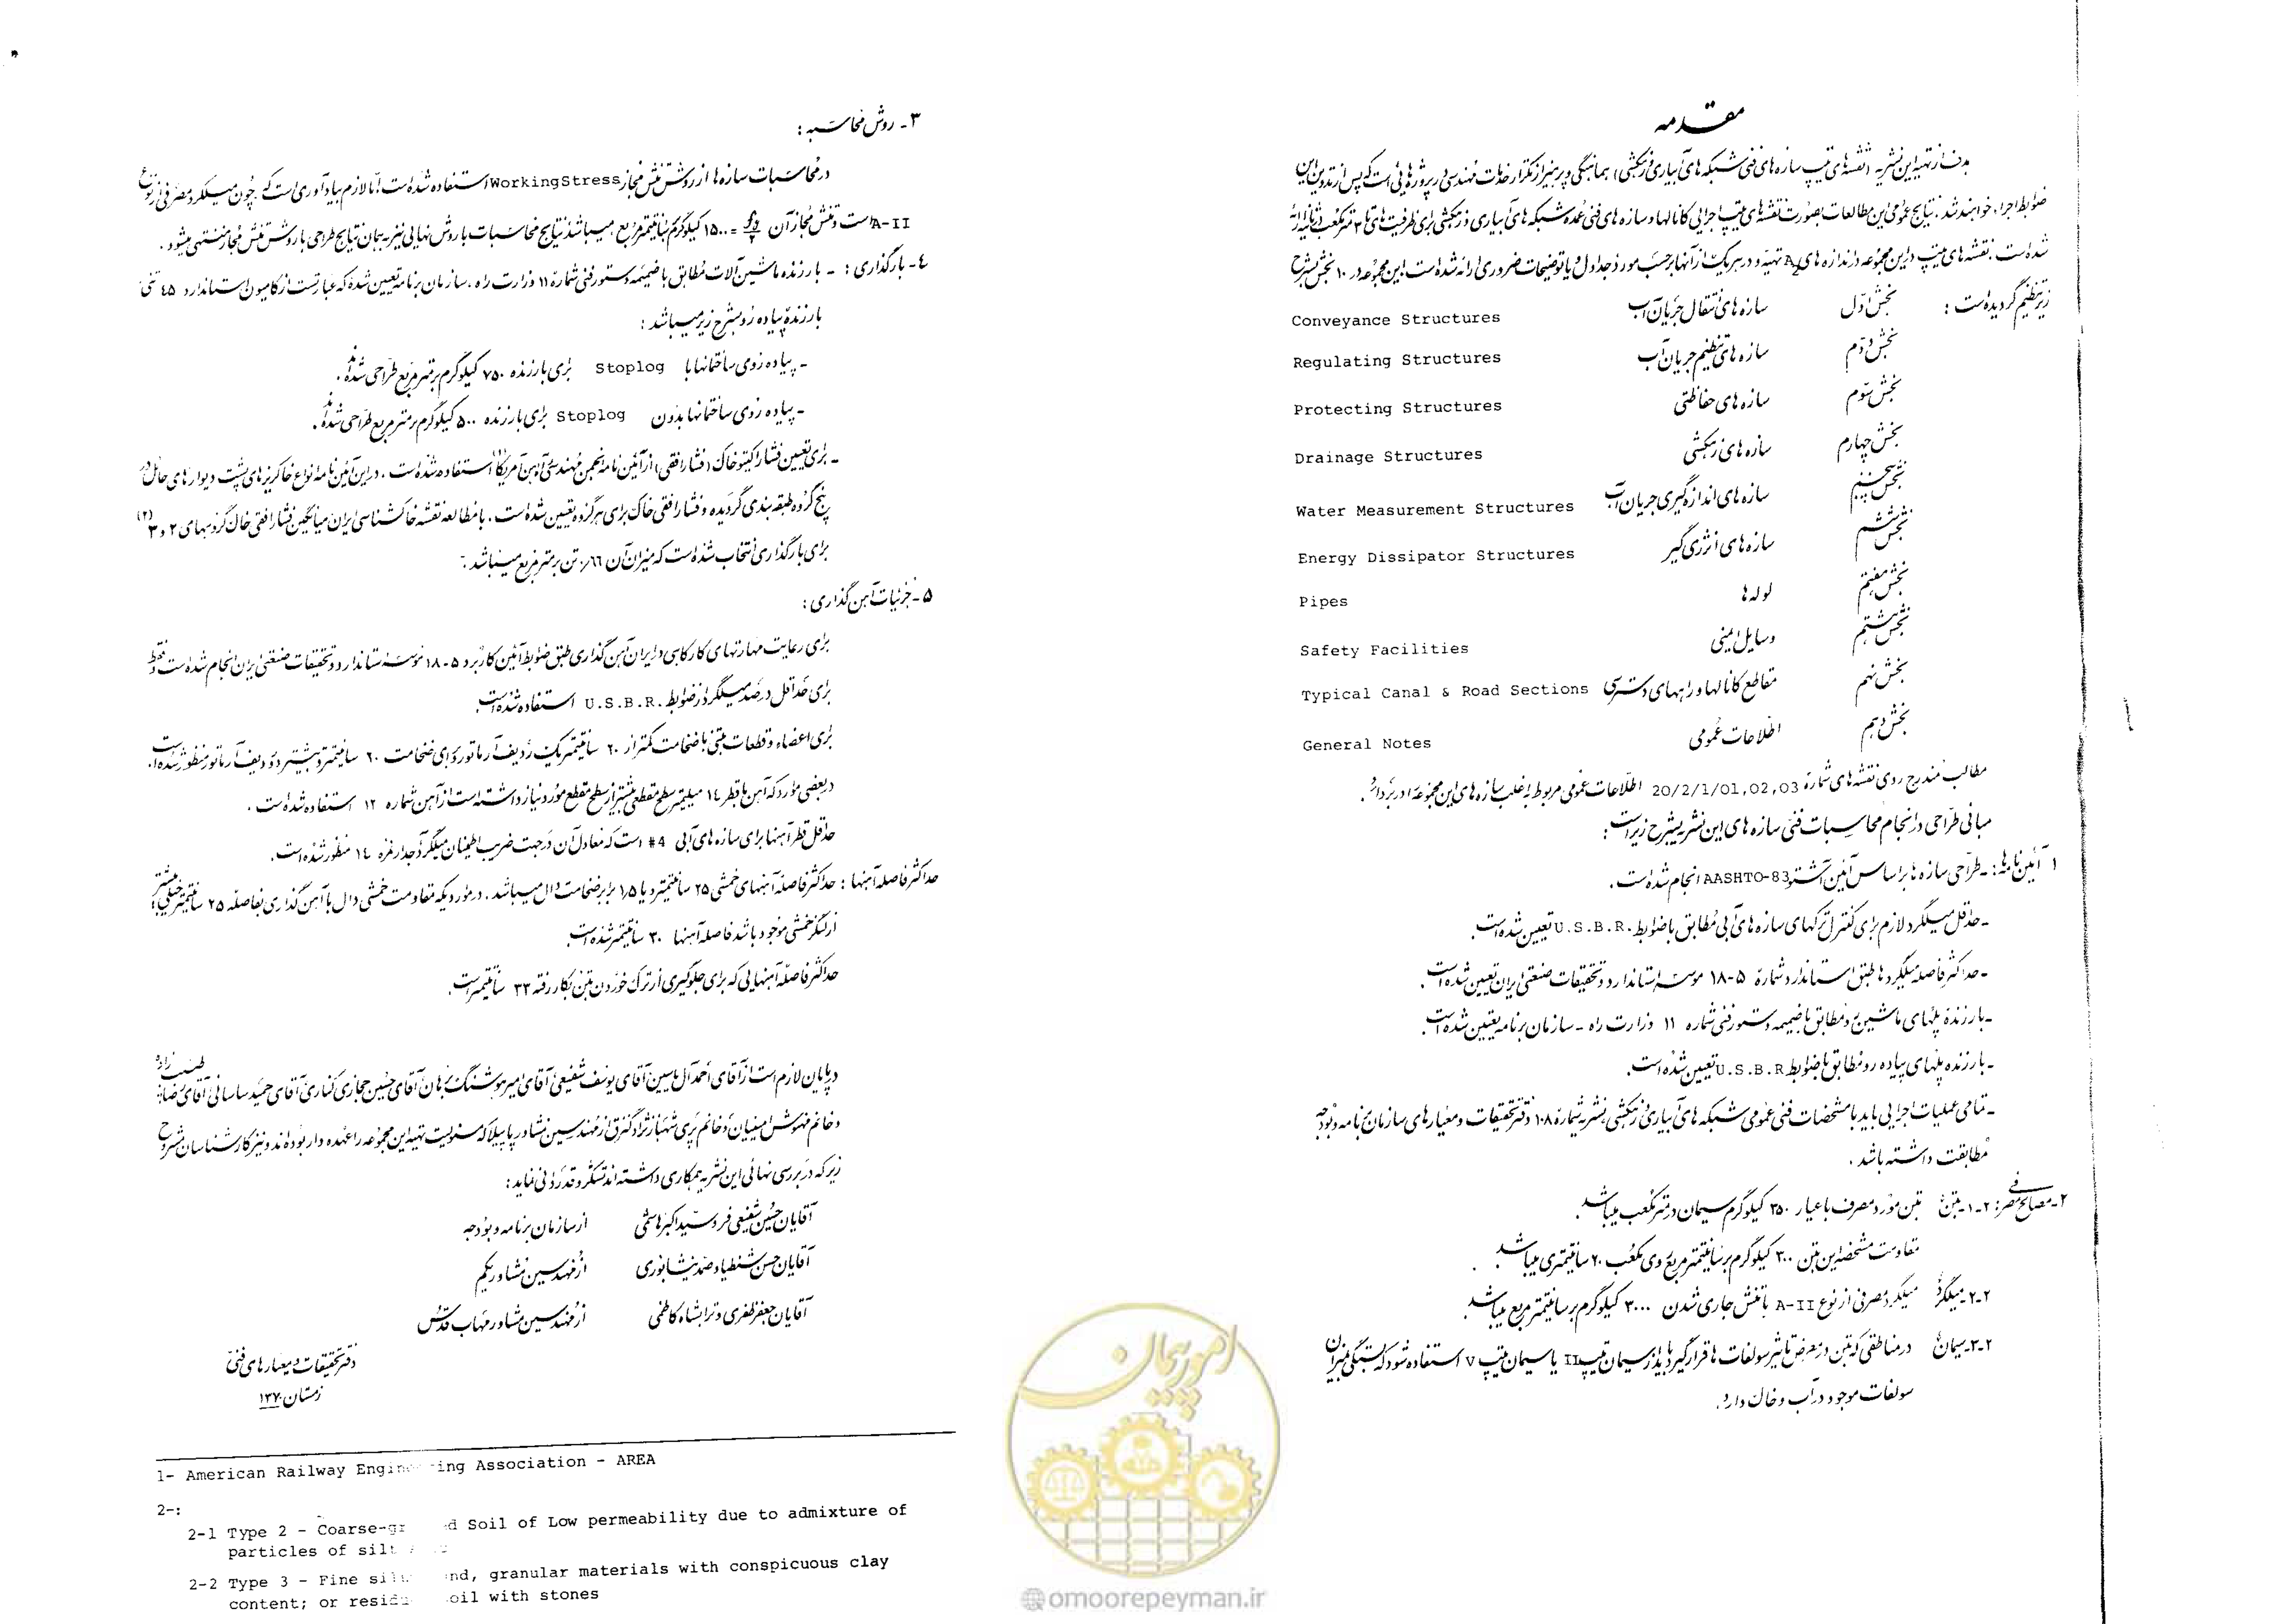 مقدمه
هدف از تهیه این نشریه (نقشه‌های تیپ سازه‌های فنی شبکه‌های آبیاری و زهکشی) هماهنگی و پرهیز از تکرار خدمات مهندسی در پروژه‌هایی است که پس از تدوین این
ضوابط اجراء خواهند شد. نتایج عمومی این مطالعات بصورت نقشه‌های تیپ اجرایی کانالها و سازه‌های فنی عمده شبکه‌های آبیاری و زهکشی برای ظرفیت‌های تا ۳ مترمکعب در ثانیه ارائه
شده است. نقشه‌های تیپ در این مجموعه در اندازه‌های A2 تهیه و در هر یک از آنها بر حسب مورد جداول و یا توضیحات ضروری ارائه شده است. این مجموعه در ۱۰ بخش بشرح
زیر تنظیم گردیده است :
بخش اول سازه‌های انتقال جریان آب Conveyance Structures
بخش دوم سازه‌های تنظیم جریان آب Regulating Structures
بخش سوم سازه‌های حفاظتی Protecting Structures
بخش چهارم سازه‌های زهکشی Drainage Structures
بخش پنجم سازه‌های اندازه‌گیری جریان آب Water Measurement Structures
بخش ششم سازه‌های انرژی‌گیر Energy Dissipator Structures
بخش هفتم لوله‌ها Pipes
بخش هشتم وسایل ایمنی Safety Facilities
بخش نهم مقاطع کانالها و راههای دسترسی Typical Canal & Road Sections
بخش دهم اطلاعات عمومی General Notes
مطالب مندرج روی نقشه‌های شماره 20/2/1/01,02,03 اطلاعات عمومی مربوط به اغلب سازه‌های این مجموعه را در بر دارد.
مبانی طراحی در انجام محاسبات فنی سازه‌های این نشریه بشرح زیر است :
۱ آئین‌نامه‌ها : - طراحی سازه‌ها بر اساس آئین آشتو AASHTO-83 انجام شده است.
- حداقل میلگرد لازم برای کنترل ترکهای سازه‌های آبی مطابق با ضوابط U.S.B.R. تعیین شده است.
- حداکثر فاصله میلگردها طبق استاندارد شماره ۵-۱۸ موسسه استاندارد و تحقیقات صنعتی ایران تعیین شده است.
- بار زنده پلهای ماشین‌رو مطابق با ضمیمه دستور فنی شماره ۱۱ وزارت راه - سازمان برنامه تعیین شده است.
- بار زنده پلهای پیاده‌رو مطابق با ضوابط U.S.B.R تعیین شده است.
- تمامی عملیات اجرایی باید با مشخصات فنی عمومی شبکه‌های آبیاری و زهکشی، نشریه شماره ۱۰۸ دفتر تحقیقات و معیارهای سازمان برنامه و بودجه
مطابقت داشته باشد.
۲- مصالح مصرفی : ۲-۱- بتن بتن مورد مصرف با عیار ۳۵۰ کیلوگرم سیمان در مترمکعب میباشد.
مقاومت مشخصه این بتن ۳۰۰ کیلوگرم بر سانتیمتر مربع روی مکعب ۲۰ سانتیمتری میباشد.
۲-۲- میلگرد میلگرد مصرفی از نوع A-II با تنش جاری شدن ۳۰۰۰ کیلوگرم بر سانتیمتر مربع میباشد.
۲-۳- سیمان در مناطقی که بتن در معرض تاثیر سولفات‌ها قرار گیرد باید از سیمان تیپ II یا سیمان تیپ V استفاده شود که بستگی به میزان
سولفات موجود در آب و خاک دارد.
۳- روش محاسبه :
در محاسبات سازه‌ها از روش تنش مجاز Working Stress استفاده شده است. اما لازم بیادآوری است که چون میلگرد مصرفی از نوع
A-II است و تنش مجاز آن fy/۲ = ۱۵۰۰ کیلوگرم بر سانتیمتر مربع میباشد نتایج محاسبات با روش نهایی نیز به همان نتایج طراحی با روش تنش مجاز منتهی میشود.
۴- بارگذاری : - بار زنده ماشین‌آلات مطابق با ضمیمه دستور فنی شماره ۱۱ وزارت راه، سازمان برنامه تعیین شده که عبارتست از کامیون استاندارد ۴۵ تنی
بار زنده پیاده‌رو بشرح زیر میباشد :
- پیاده‌روی ساختمانها با Stoplog برای بار زنده ۷۵۰ کیلوگرم بر متر مربع طراحی شده‌اند.
- پیاده‌روی ساختمانها بدون Stoplog برای بار زنده ۵۰۰ کیلوگرم بر متر مربع طراحی شده‌اند.
- برای تعیین فشار اکتیو خاک (فشار افقی) از آئین‌نامه انجمن مهندسی راه‌آهن آمریکا (۱) استفاده شده است. در این آئین‌نامه انواع خاکریزهای پشت دیوارهای حائل در
پنج گروه طبقه‌بندی گردیده و فشار افقی خاک برای هر گروه تعیین شده است. با مطالعه نقشه خاکشناسی ایران میانگین فشار افقی خاک گروههای ۲ و ۳ (۲)
برای بارگذاری انتخاب شده است که میزان آن ۰/۶۶ تن بر متر مربع میباشد.
۵- جزئیات آهن‌گذاری :
برای رعایت مهارتهای کارگاهی در ایران آهن‌گذاری طبق ضوابط آئین کاربرد ۵-۱۸ موسسه استاندارد و تحقیقات صنعتی ایران انجام شده است و فقط
برای حداقل درصد میلگرد از ضوابط U.S.B.R. استفاده شده است.
برای اعضاء و قطعات بتنی با ضخامت کمتر از ۲۰ سانتیمتر یک ردیف آرماتور و برای ضخامت ۲۰ سانتیمتر و بیشتر دو ردیف آرماتور منظور شده است.
در بعضی موارد که آهن با قطر ۱۴ میلیمتر سطح مقطعی بیشتر از سطح مقطع مورد نیاز داشته است از آهن شماره ۱۲ استفاده شده است.
حداقل قطر آهنها برای سازه‌های آبی #4 است که معادل آن در جهت ضریب اطمینان میلگرد آجدار نمره ۱۴ منظور شده است.
حداکثر فاصله آهنها : حداکثر فاصله آهنهای خمشی ۲۵ سانتیمتر و یا ۱/۵ برابر ضخامت دال میباشد. در مواردیکه مقاومت خمشی دال با آهن‌گذاری بفاصله ۲۵ سانتیمتر خیلی بیشتر
از لنگر خمشی موجود باشد فاصله آهنها ۳۰ سانتیمتر شده است.
حداکثر فاصله آهنهایی که برای جلوگیری از ترک خوردن بتن بکار رفته ۳۳ سانتیمتر است.
در پایان لازم است از آقای احمد آل یاسین آقای یوسف شفیعی آقای امیر هوشنگ برهان آقای حسین حجازی کناری آقای حمید ساسانی آقای رضا
و خانم مهوش امینیان و خانم پری شهبازنژاد از مهندسین مشاور پابیلا که مسئولیت تهیه این مجموعه را عهده‌دار بوده‌اند و نیز کارشناسان مشروح
زیر که در بررسی نهائی این نشریه همکاری داشته‌اند تشکر و قدردانی نماید :
آقایان حسین شفیعی‌فر و سید اکبر هاشمی از سازمان برنامه و بودجه
آقایان حسن و صمد نیشابوری از مهندسین مشاور یکم
آقایان جعفر ظفری و کاظمی از مهندسین مشاور مهاب قدس
دفتر تحقیقات و معیارهای فنی
زمستان ۱۳۷۰
1- American Railway Engineering Association - AREA
2-:
2-1 Type 2 - Coarse-gr d Soil of Low permeability due to admixture of
particles of silt
2-2 Type 3 - Fine silt nd, granular materials with conspicuous clay
content; or resid oil with stones
امور پیمان
@omoorepeyman.ir